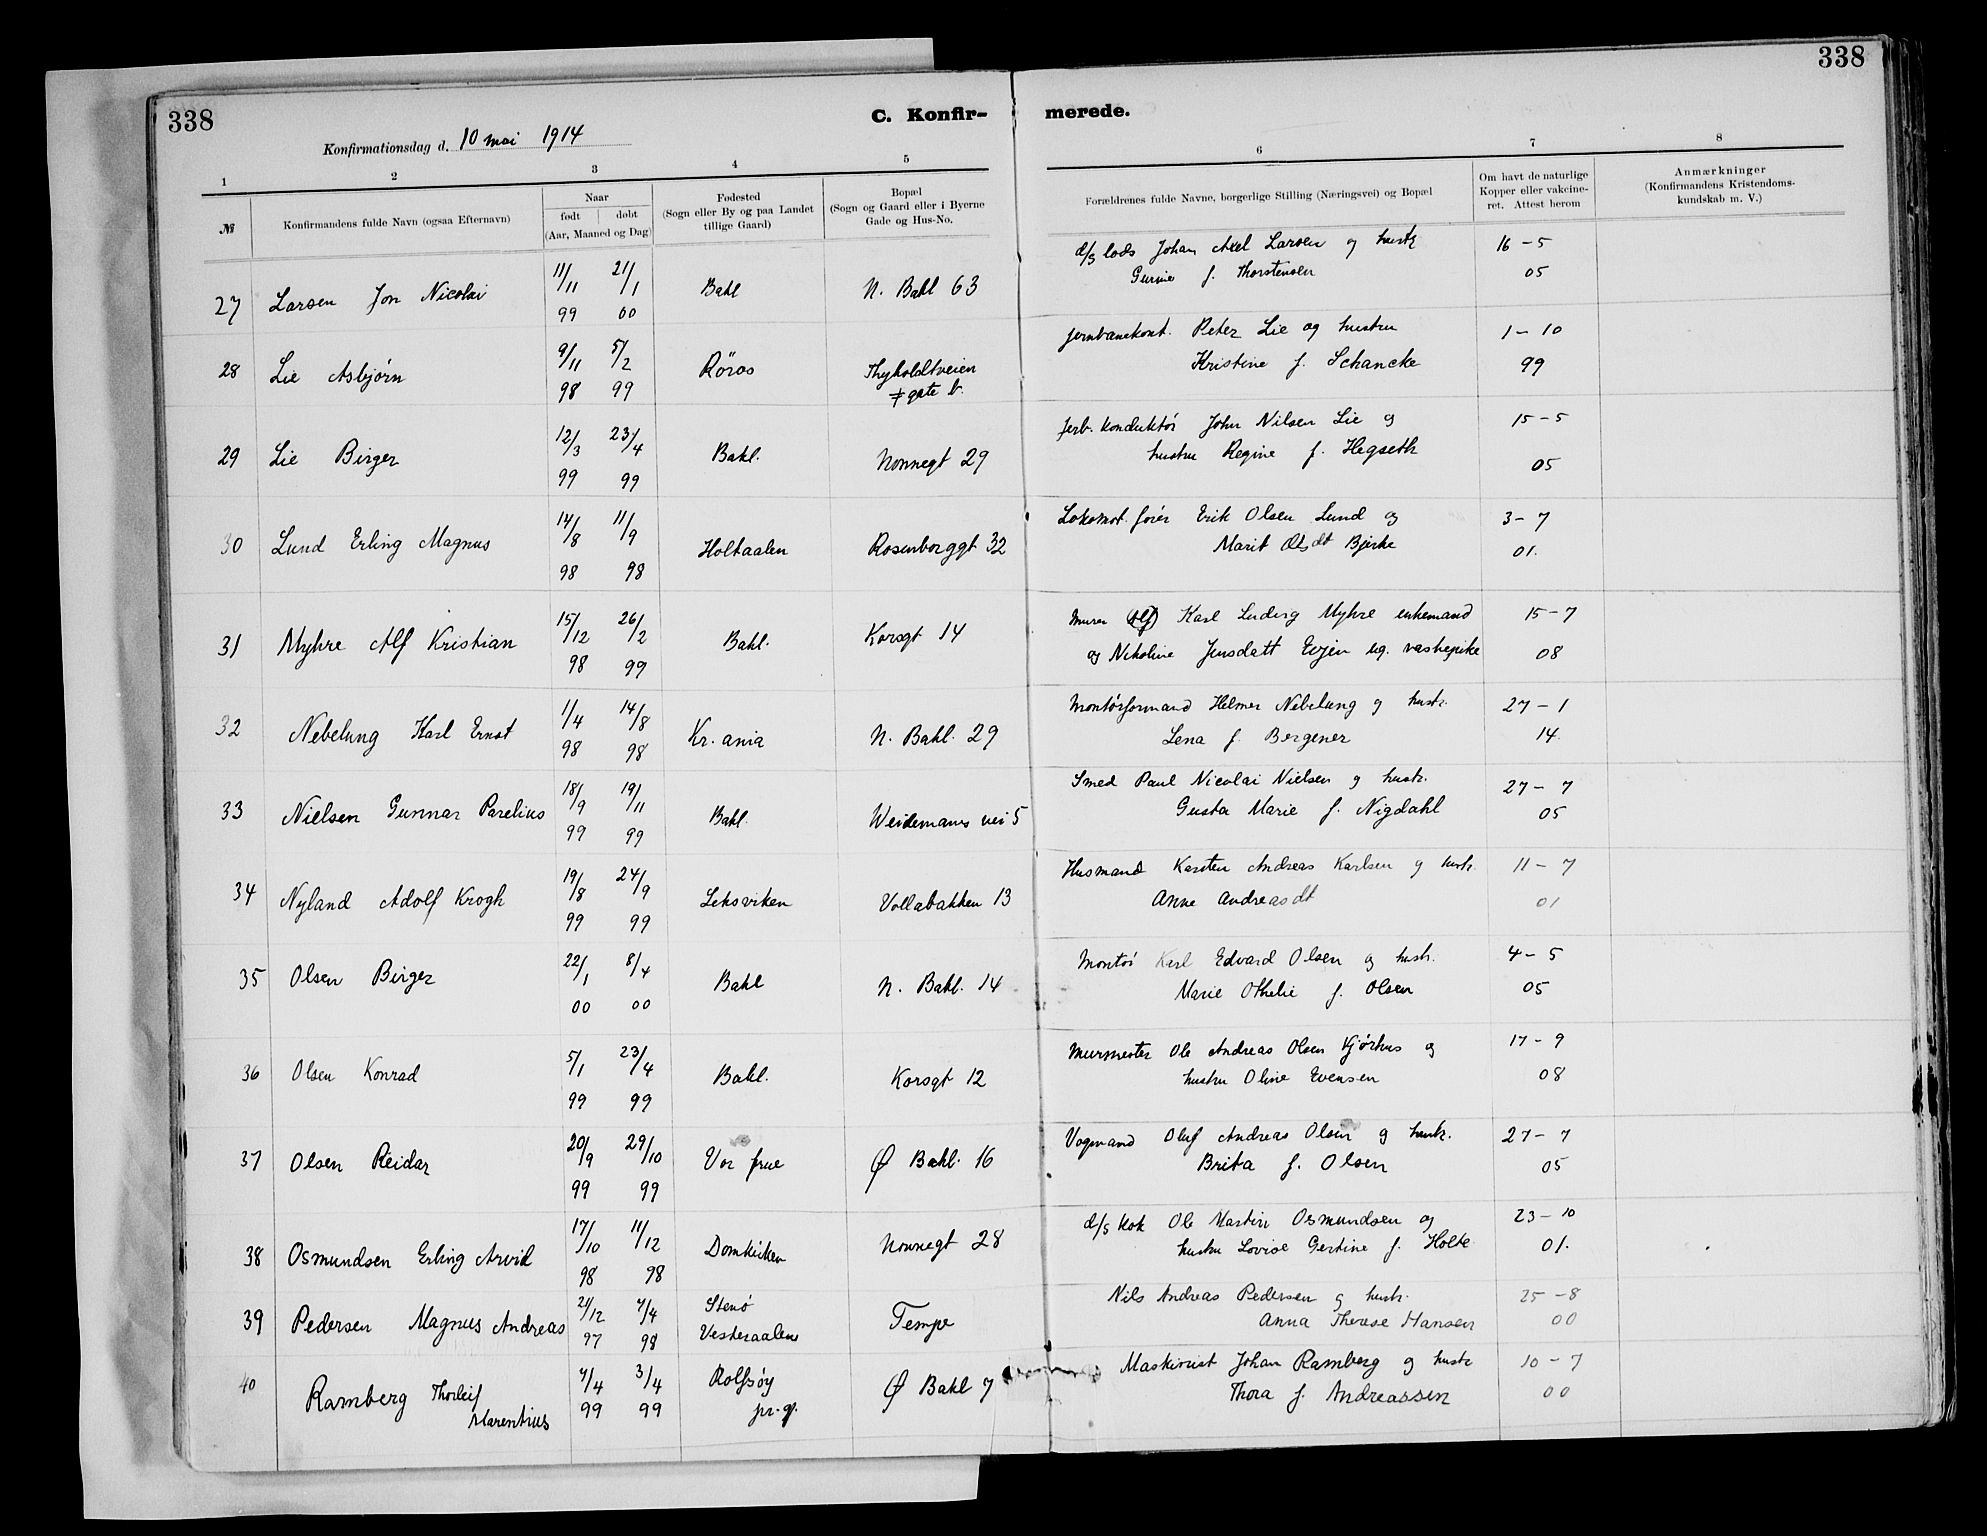 338
338
C. Konfir-
merede.
Konfirmationsdag d. 10 mai 1914
1 2 3 4 5 6 7 8
№
Konfirmandens fulde Navn (ogsaa Efternavn)
Naar
født | døbt
(Aar, Maaned og Dag)
Fødested
(Sogn eller By og paa Landet
tillige Gaard)
Bopæl
(Sogn og Gaard eller i Byerne
Gade og Hus-No.
Forældrenes fulde Navne, borgerlige Stilling (Næringsvei) og Bopæl
Om havt de naturlige
Kopper eller vakcine-
ret. Attest herom
Anmærkninger
(Konfirmandens Kristendoms-
kundskab m. V.)
27 Larsen Jon Nicolai 11/11 99 21/1 00 Bakl N. Bakl 63
d/s lods Johan Axel Larsen og hustr 16-5
Gurine f. Thorstensen 05
28 Lie Asbjørn 9/11 98 5/2 99 Röros Thyholdtveien
≠ gate b.
jernbanekont. Peter Lie og hustru 1-10
Kristine f. Schancke 99
29 Lie Birger 12/3 99 23/4 99 Bakl. Nonnegt 29
jerb. konduktör John Nilsen Lie og 15-5
hustru Regine f. Hegseth 05
30 Lund Erling Magnus 14/8 98 11/9 98 Holtaalen Rosenborggt 32
Lokomot. förer Erik Olsen Lund og 3-7
Marit Olsdt Bjerke 01.
31 Myhre Alf Kristian 15/12 98 26/2 99 Bakl. Korsgt 14
Murer (Alf) Karl Ludvig Myhre enkemand 15-7
og Nikoline Jensdatt Evjen ug. vaskepike 08
32 Nebelung Karl Ernst 1/4 98 14/8 98 Kr. ania N. Bakl. 29
Montörformand Helmer Nebelung og hustr. 27-1
Lena f. Bergener 14.
33 Nielsen Gunnar Parelius 18/9 99 19/11 99 Bakl. Weidemans vei 5
Smed Paul Nicolai Nielsen og hustr. 27-7
Gusta Marie f. Nigdahl 05
34 Nyland Adolf Krogh 19/8 99 24/9 99 Leksviken Vollabakken 13
Husmand Karsten Andreas Karlsen og hustr. 11-7
Anne Andreasdt 01
35 Olsen Birger 22/1 00 8/4 00 Bakl N. Bakl. 14
Montör Karl Edvard Olsen og hustr. 4-5
Marie Othelie f. Olsen 05
36 Olsen Konrad 5/1 99 23/4 99 Bakl. Korsgt 12
Murmester Ole Andreas Olsen Kjørhus og 17-9
hustru Oline Evensen 08
37 Olsen Reidar 20/9 99 29/10 99 Vor frue Ø Bakl. 16
Vogmand Oluf Andreas Olsen og hustr. 27-7
Brita f. Olsen 05
38 Osmundsen Erling Arvid 17/10 98 11/12 98 Domkirken Nonnegt 28
d/s kok Ole Martin Osmundsen og 23-10
hustru Lovise Gertine f. Holte 01.
39 Pedersen Magnus Andreas 21/12 97 4/4 98 Stenö
Vesteraalen Tempe
Nils Andreas Pedersen og hustr. 25-8
Anna Therese Hansen 00
40 Ramberg Thorleif
Marentius 4/4 99 3/4 99 Rolfsöy
pr. g. Ø Bakl 7
Maskinist Johan Ramberg og hustr 10-7
Thora f. Andreassen 00